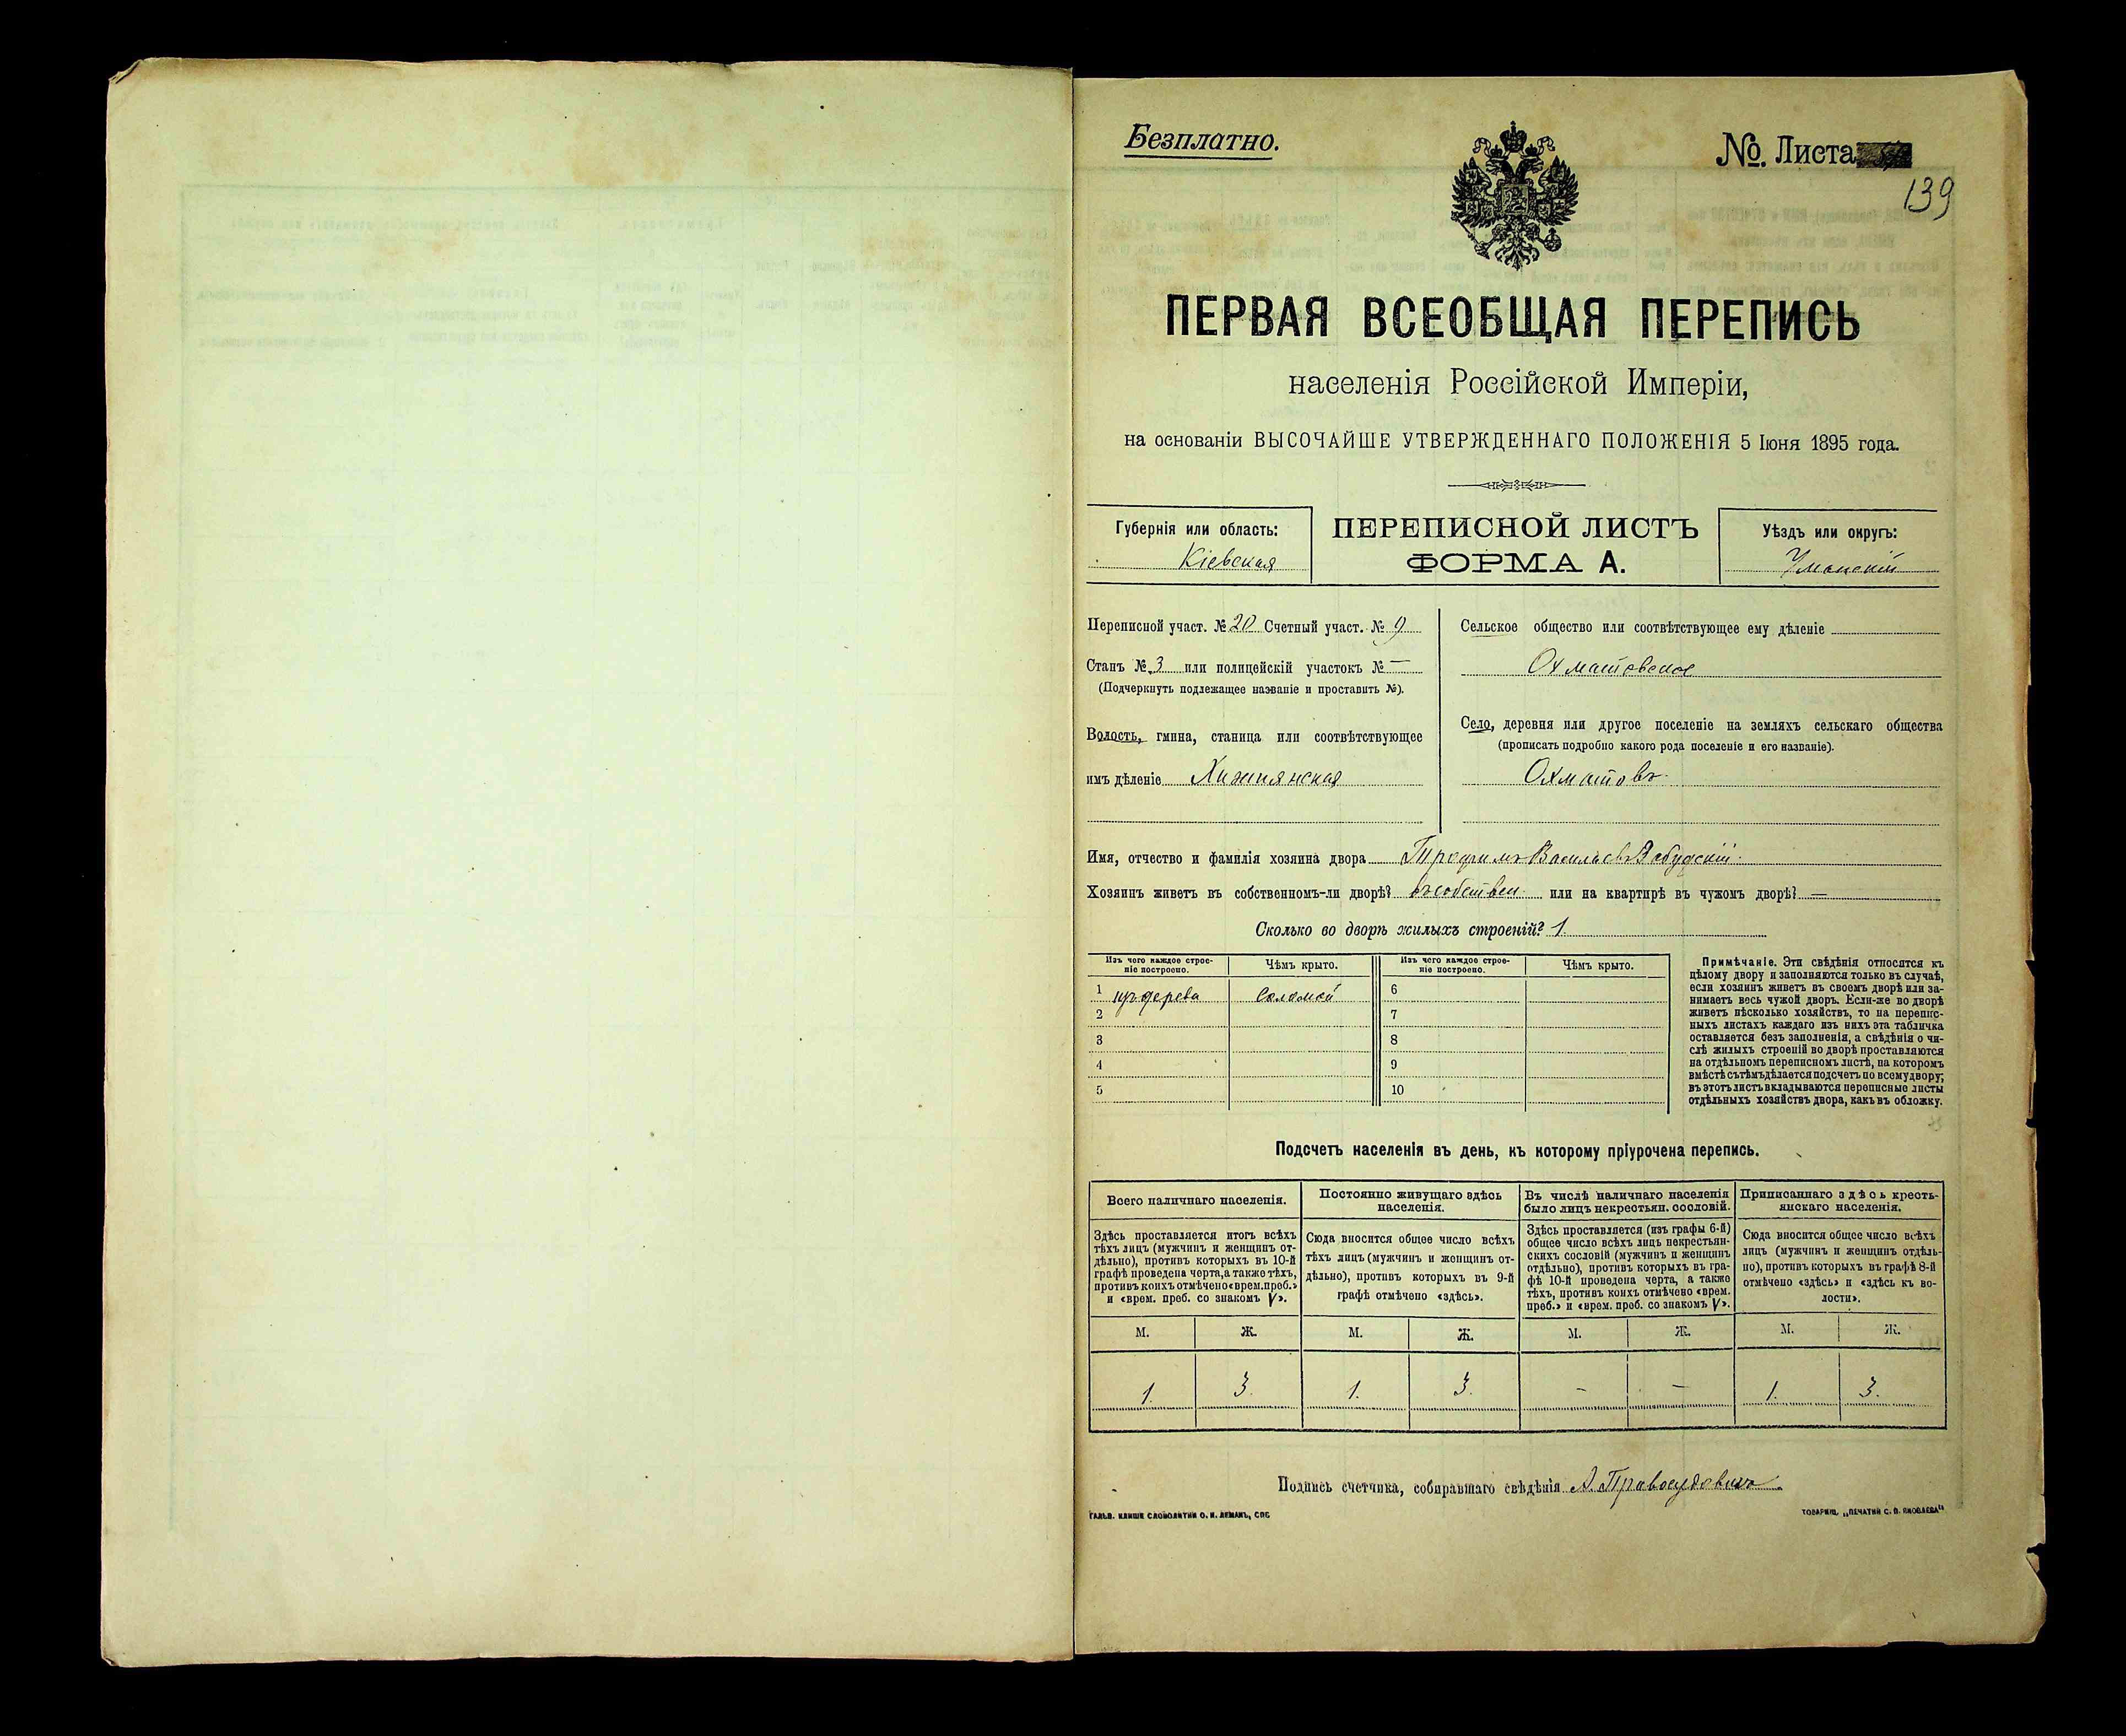 Безплатно.
№ Листа
139
ПЕРВАЯ ВСЕОБЩАЯ ПЕРЕПИСЬ
населенія Россійской Имперіи,
на основаніи ВЫСОЧАЙШЕ УТВЕРЖДЕННАГО ПОЛОЖЕНІЯ 5 Іюня 1895 года.
Губернія или область:
Кіевская
ПЕРЕПИСНОЙ ЛИСТЪ
ФОРМА А.
Уѣздъ или округъ:
Уманскій
Переписной участ. № 20 Счетный участ. № 9
Станъ № 3 или полицейскій участокъ № —
(Подчеркнуть подлежащее названіе и проставить №).
Волость, гмина, станица или соотвѣтствующее
имъ дѣленіе Хижнянская
Сельское общество или соотвѣтствующее ему дѣленіе
Охматовское
Село, деревня или другое поселеніе на земляхъ сельскаго общества
(прописать подробно какого рода поселеніе и его названіе).
Охматовъ
Имя, отчество и фамилія хозяина двора Трофимъ Васильевъ
Хозяинъ живетъ въ собственномъ-ли дворѣ? въ собствен. или на квартирѣ въ чужомъ дворѣ? —
Сколько во дворѣ жилыхъ строеній? 1
Изъ чего каждое строе-
ніе построено.
Чѣмъ крыто.
Изъ чего каждое строе-
ніе построено.
Чѣмъ крыто.
1 изъ дерева Соломой 6
2 7
3 8
4 9
5 10
Примѣчаніе. Эти свѣдѣнія относятся къ
цѣлому двору и заполняются только въ случаѣ,
если хозяинъ живетъ въ своемъ дворѣ или за-
нимаетъ весь чужой дворъ. Если-же во дворѣ
живетъ нѣсколько хозяйствъ, то на перепис-
ныхъ листахъ каждаго изъ нихъ эта табличка
оставляется безъ заполненія, а свѣдѣнія о чи-
слѣ жилыхъ строеній во дворѣ проставляются
на отдѣльномъ переписномъ листѣ, на которомъ
вмѣстѣ съ тѣмъ дѣлается подсчетъ по всему двору;
въ этотъ листъ вкладываются переписные листы
отдѣльныхъ хозяйствъ двора, какъ въ обложку.
Подсчетъ населенія въ день, къ которому пріурочена перепись.
Всего наличнаго населенія.
Здѣсь проставляется итогъ всѣхъ
тѣхъ лицъ (мужчинъ и женщинъ от-
дѣльно), противъ которыхъ въ 10-й
графѣ проведена черта, а также тѣхъ,
противъ коихъ отмѣчено «врем. преб.»
и «врем. преб. со знакомъ V».
Постоянно живущаго здѣсь
населенія.
Сюда вносится общее число всѣхъ
тѣхъ лицъ (мужчинъ и женщинъ от-
дѣльно), противъ которыхъ въ 9-й
графѣ отмѣчено «здѣсь».
Въ числѣ наличнаго населенія
было лицъ некрестьян. сословій.
Здѣсь проставляется (изъ графы 6-й)
общее число всѣхъ лицъ некрестьян-
скихъ сословій (мужчинъ и женщинъ
отдѣльно), противъ которыхъ въ гра-
фѣ 10-й проведена черта, а также
тѣхъ, противъ коихъ отмѣчено «врем.
преб.» и «врем. преб. со знакомъ V».
Приписаннаго здѣсь кресть-
янскаго населенія.
Сюда вносится общее число всѣхъ
лицъ (мужчинъ и женщинъ отдѣль-
но), противъ которыхъ въ графѣ 8-й
отмѣчено «здѣсь» и «здѣсь къ во-
лости».
М. Ж. М. Ж. М. Ж. М. Ж.
1. 3. 1. 3. — — 1. 3.
Подпись счетчика, собиравшаго свѣдѣнія А. Правосудовичъ
ГАЛЬВ. КЛИШЕ СЛОВОЛИТНИ О. И. ЛЕМАНЪ, СПБ
ТОВАРИЩ. „ПЕЧАТНИ С. П. ЯКОВЛЕВА"